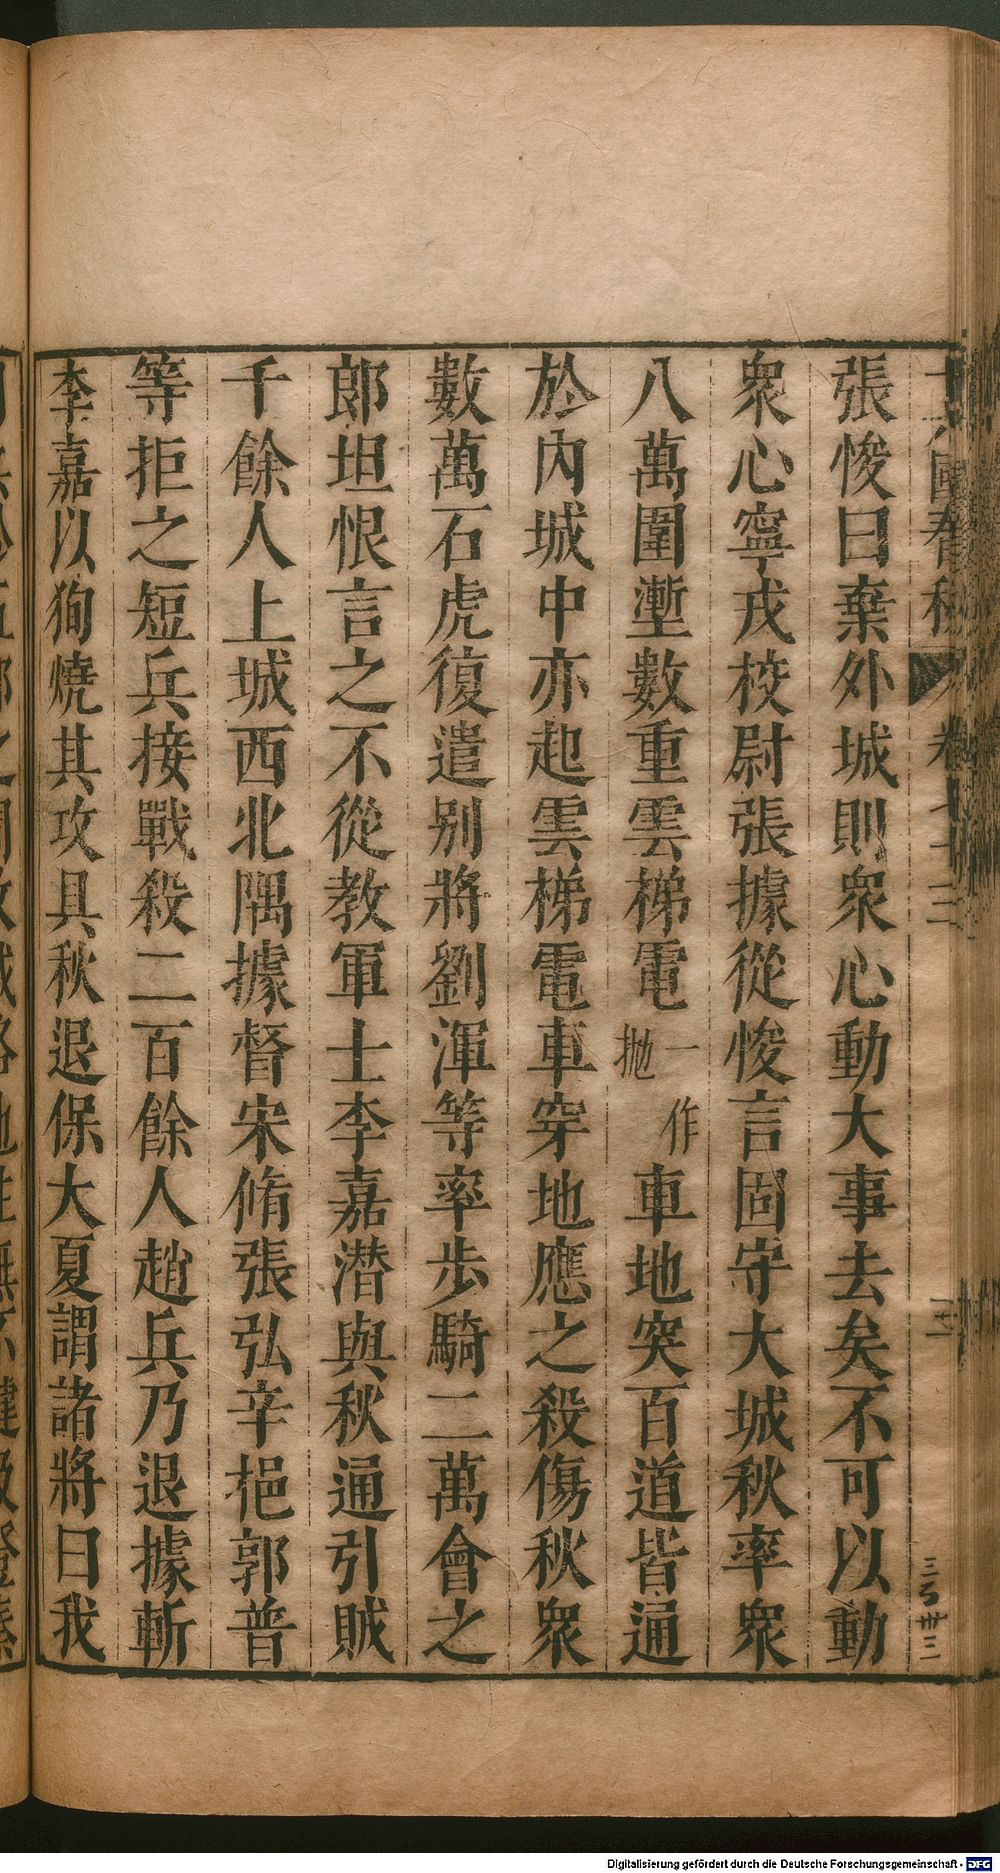 張悛曰棄外城則衆心動大事去矣不可以動
衆心寧戎校尉張據從悛言固守大城秋率衆
八萬圍塹數重雲梯電一作拋車地突百道皆通
於內城中亦起雲梯電車穿地應之殺傷秋衆
數萬石虎復遣别將劉渾等率步騎二萬會之
郎坦恨言之不從教軍士李嘉潛與秋通引賊
千餘人上城西北隅據督宋脩張弘辛挹郭普
等拒之短兵接戰殺二百餘人趙兵乃退據斬
李嘉以狥燒其攻具秋退保大夏謂諸將曰我
Digitalisierung gefördert durch die Deutsche Forschungsgemeinschaft - DFG